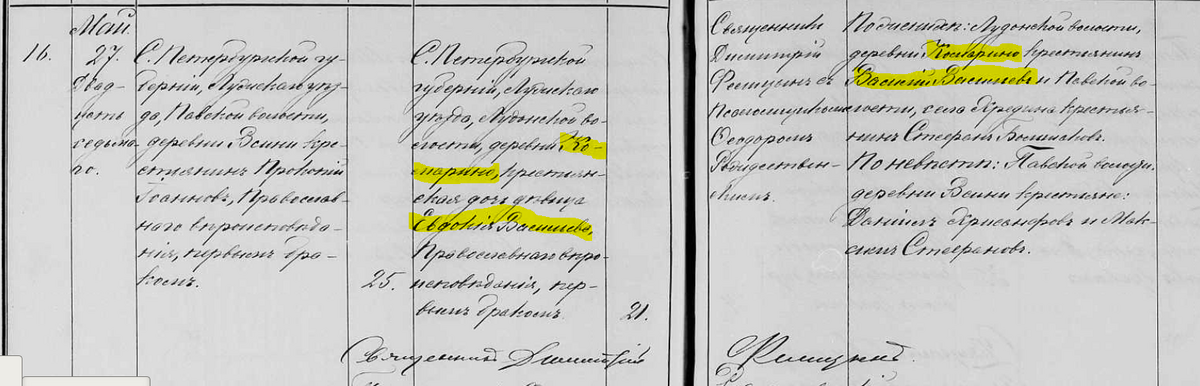 Май.
16.
27.
Двад-
цать
седьма-
го.
С. Петербургской гу-
берніи, Лужскаго уѣз-
да, Павской волости,
деревни Велни кре-
стьянинъ Прокопій
Іоанновъ, Православ-
наго вѣроисповѣда-
нія, первымъ бра-
комъ.
25.
С. Петербургской
губерніи, Лужскаго
уѣзда, Лудонской во-
лости, деревни Ко-
марино, крестьян-
ская дочь дѣвица
Евдокія Васильева,
Православнаго вѣро-
исповѣданія, пер-
вымъ бракомъ.
21.
Священникъ Димитрій
Священникъ
Димитрій
съ
Псаломщикомъ
Ѳеодоромъ
Рождествен-
скимъ.
По женихѣ: Лудонской волости,
деревни Комарино крестьянинъ
Василій Васильевъ и Павской во-
лости, села крестья-
нинъ Стефанъ
По невѣстѣ: Павской волости,
деревни Велни крестьяне:
Даніилъ Хрисанфовъ и Мак-
симъ Стефановъ.